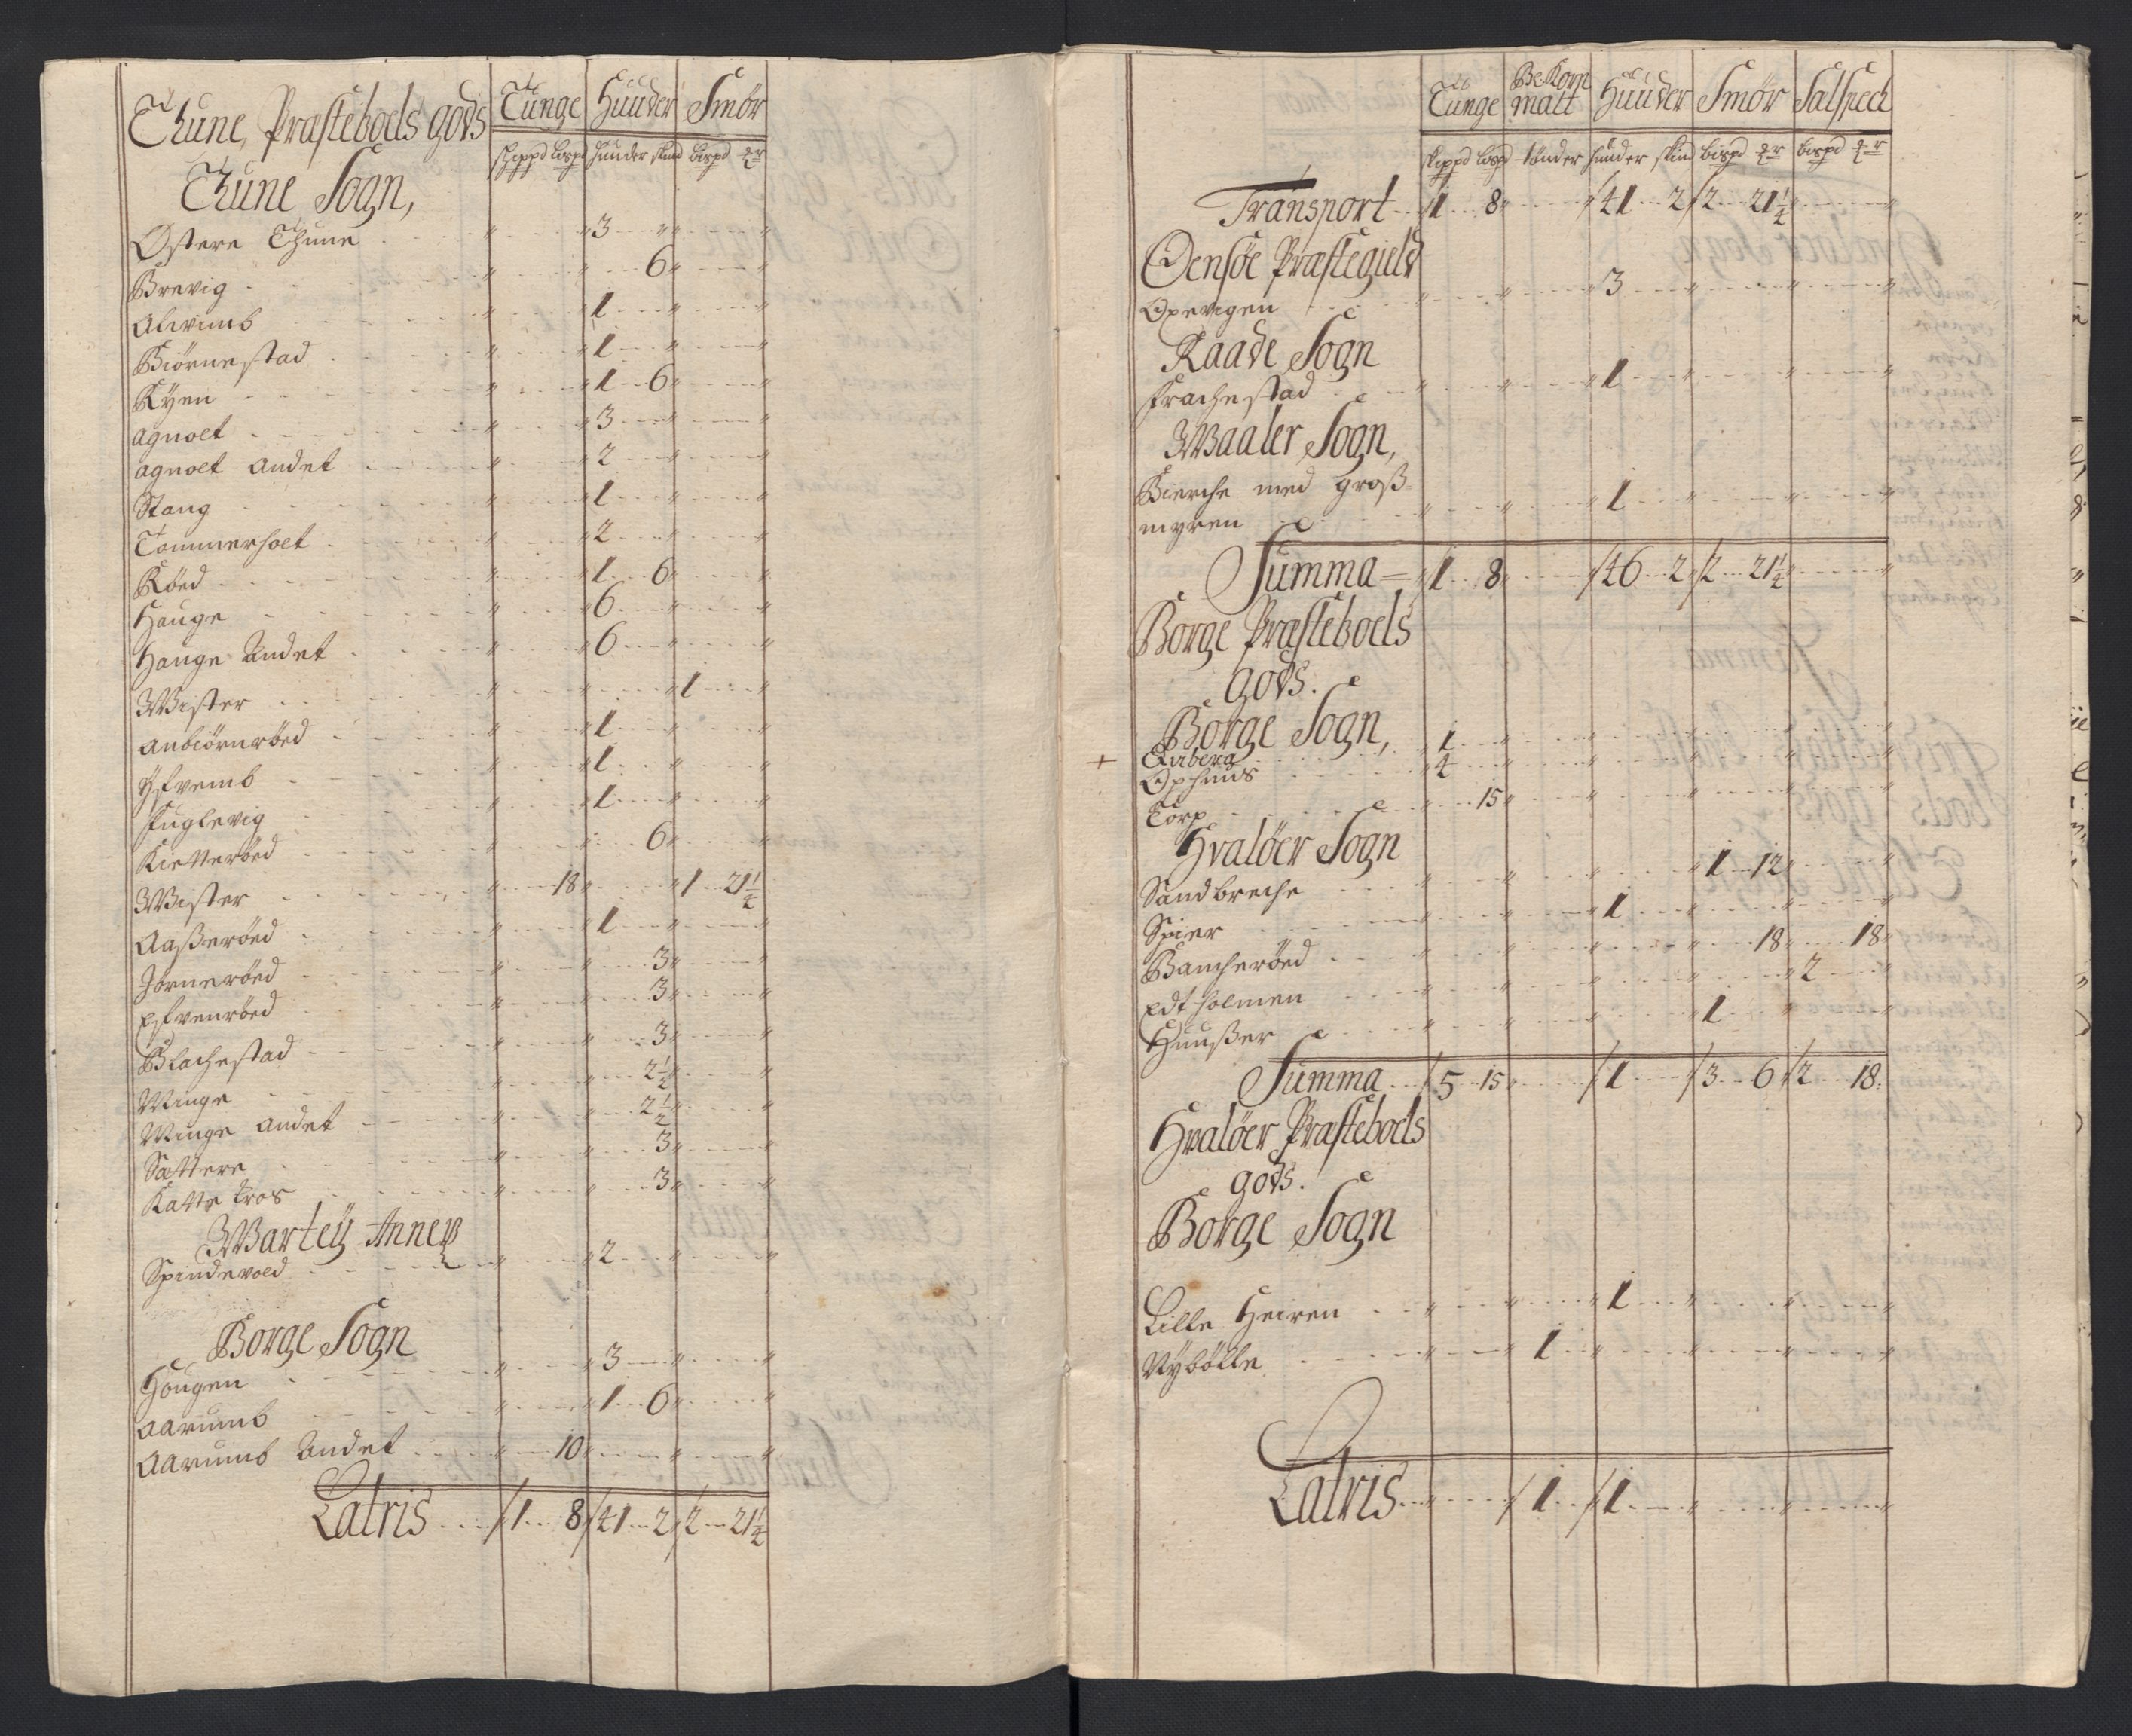 Thune, Præsteboels gods Tunge Huuder Smör
skippd Lispd huuder skind bispd
Thune Sogn,
Østere Thune 3
Brevig 6
Alvimb 1
Biörnestad 1
Ryen 1 6
agnolt 3
agnolt Andet 2
Stang 1
Tommerholt 2
Röed 1 6
Hauge 6
Hauge Andet 6
Wister 1
Anbiörnröed 1
Ysvemb 1
Fuglevig 1
Kietteröed 6
Wister 18 1 21½
Aaßeröed 1
Jorneröed 3
Esvenröed 3
Blachestad 3
Winge 2½
Winge Andet 2½
Sættere 3
Katte tros 3
Wartey Annex
Spindevold 2
Borge Sogn
Hougen 3
Aarumb 1 6
Aarumb Andet 10
Latris 1 8 41 2 2 21½
Tunge Be Korn matt Huuder Smör Saltspeck
skippd Lispd tönder huuder skind bispd bispd
Transport 1 8 41 2 2 21½
Oensöe Præstegield
Opevigen 3
Raade Sogn
Frachestad 1
Waaler Sogn,
Bierche med Groß
myren 1
Summa 1 8 46 2 2 21½
Borge Præsteboels
gods.
Borge Sogn,
1
Ophuus 4
Torp 15
Hvalöer Sogn
Sandbreche 1 12
Spier 1
Bancheröed 18 18
Edtholmen 2
Huußer 1
Summa 5 15 1 3 6 2 18
Hvalöer Præsteboels
gods.
Borge Sogn
Lille Heiren 1
Nyböлle 1
Latris 1 1